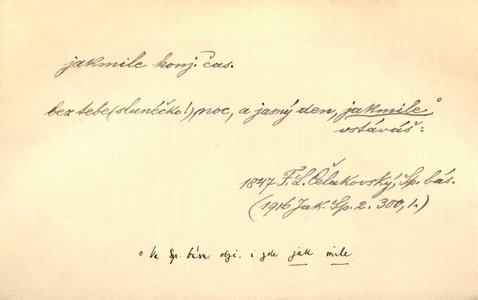 jakmile konj. čas.
bez tebe (slunéčko!) noc, a jamý den, jakmile°
vstáváš:
1847 F. L. Čelakovský, Sp. bás.
(1916 Jak. Sp. 2. 300, 1.)
° Ve Sp. básn. i zde jak mile